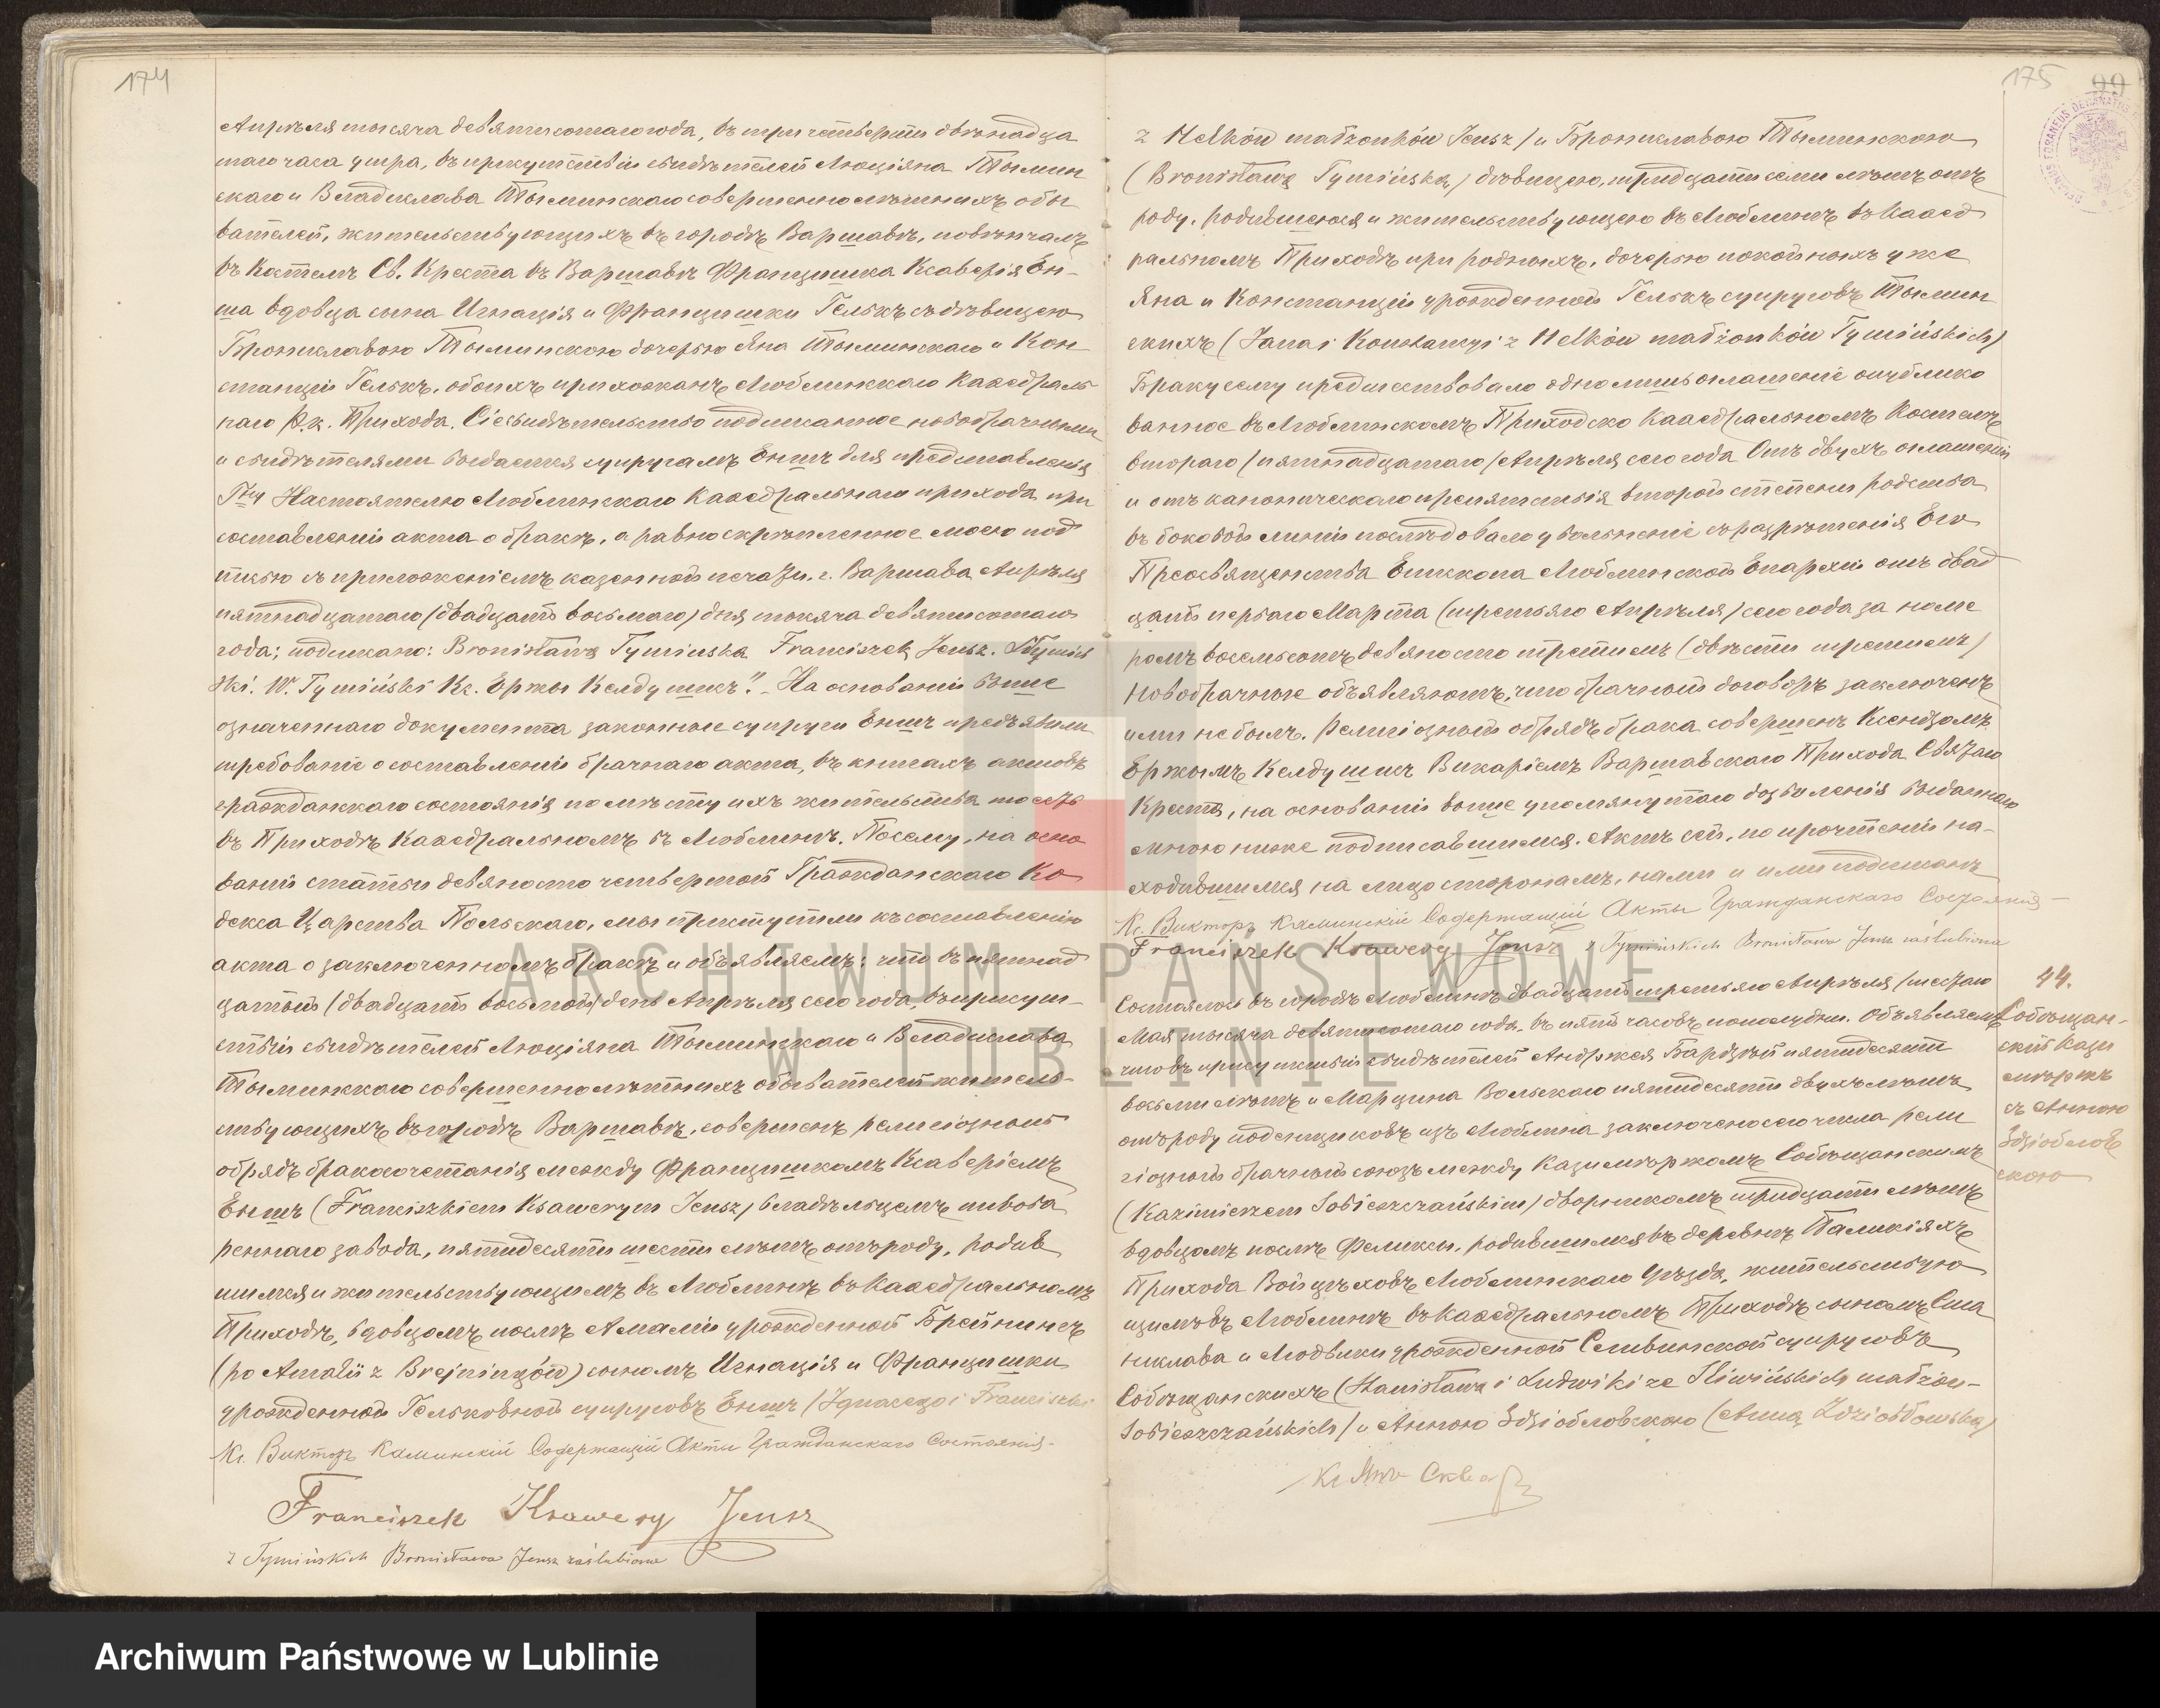 174
Апрѣля тысяча девятисотаго года, въ три четверти двѣнадца
таго часа утра, въ присутствіи свидѣтелей Люціяна Тымин
скаго и Владислава Тыминскаго совершеннолѣтнихъ обы
вателей, жительствующихъ въ городѣ Варшавѣ, повѣнчалъ
въ Костелѣ Св. Креста въ Варшавѣ Францишка Ксаверія Ен-
ша вдовца сына Игнація и Францишки Гелькъ съ дѣвицею
Брониславою Тыминскою дочерью Яна Тыминскаго и Кон
станціи Гелькъ, обоихъ прихожанъ Люблинскаго Каѳедраль
наго Р.к. Прихода. Сіе свидѣтельство подписанное новобрачными
и свидѣтелями выдается супругамъ Еншъ для представленія
Гну Настоятелю Люблинскаго Каѳедральнаго прихода при
составленіи акта о бракѣ, а равно скрѣпленное моею под
писью съ приложеніемъ казенной печати. г. Варшава Апрѣля
пятнадцатаго (двадцать восьмаго) дня тысяча девятисотаго
года; подписано: Bronisława Tymińska Franciszek Jensz. LTymiń
ski. W. Tymiński Кс. Ержы Келдушикъ". - На основаніи выше
означеннаго документа законные супруги Еншъ предъявили
требованіе о составленіи брачнаго акта, въ книгахъ актовъ
гражданскаго состоянія по мѣсту ихъ жительства то есть
въ Приходѣ Каѳедральномъ въ Люблинѣ. Посему, на осно
ваніи статьи девяносто четвертой Гражданскаго Ко
декса Царства Польскаго, мы приступили къ составленію
акта о заключенномъ бракѣ и объявляемъ: что въ пятнад
цатый (двадцать восьмой) день Апрѣля сего года, въ присут-
ствіи свидѣтелей Люціяна Тыминскаго и Владислава
Тыминскаго совершеннолѣтнихъ обывателей житель-
ствующихъ въ городѣ Варшавѣ, совершенъ религіозный
обрядъ бракосочетанія между Францишкомъ Ксаверіемъ
Еншъ (Franciszkiem Ksawerym Jensz) владѣльцемъ пивова
реннаго завода, пятидесяти шести лѣтъ отъ роду, родив
шимся и жительствующимъ въ Люблинѣ въ Каѳедральномъ
Приходѣ, вдовцомъ послѣ Амаліи урожденной Брейнингъ
(po Amalii z Brejningów) сыномъ Игнація и Францишки
урожденной Гельковной супруговъ Еншъ (Ignacego i Franciszki
Кс. Викторъ Каминскій Содержащій Акты Гражданскаго Состоянія.
Franciszek Ksawery Jensz
z Tymińskich Bronisława Jensz zaślubiona
175
99
z Helków małżonków Jensz) и Брониславою Тыминскою
(Bronisławą Tymińską) дѣвицею, тридцати семи лѣтъ отъ
роду, родившеюся и жительствующею въ Люблинѣ въ Каѳед
ральномъ Приходѣ при родныхъ, дочерью покойныхъ уже
Яна и Констанціи урожденной Гелькъ супруговъ Тымин
скихъ (Jana i Konstancyi z Helków małżonków Tymińskich)
Браку сему предшествовало одно лишь оглашеніе опублико
ванное въ Люблинскомъ Приходско Каѳедральномъ Костелѣ
втораго (пятнадцатаго) Апрѣля сего года Отъ двухъ оглашеній
и отъ каноническаго препятствія второй степени родства
въ боковой линіи послѣдовало увольненіе съ разрѣшенія Его
Преосвященства Епископа Люблинской Епархіи отъ двад
цать перваго Марта (третьяго Апрѣля) сего года за номе
ромъ восемьсотъ девяносто третьимъ (двѣсти третьимъ)
Новобрачные объявляютъ, что брачный договоръ заключенъ
ими не былъ. Религіозный обрядъ брака совершенъ Ксендзомъ
Ержымъ Келдушикъ Викаріемъ Варшавскаго Прихода Святаго
Креста, на основаніи выше упомянутаго дозволенія выданнаго
мною ниже подписавшимся. Актъ сей, по прочтеніи на-
ходившимся на лицо сторонамъ, нами и ими подписанъ
Кс. Викторъ Каминскій Содержащій Акты Гражданскаго Состоянія
Franciszek Ksawery Jensz z Tymińskich Bronisława Jensz zaślubiona
44.
Собѣщан-
скій Кази
мѣржъ
съ Анною
Здзіоблов
скою
Состоялось въ городѣ Люблинѣ двадцать третьяго Апрѣля (шестаго
Мая тысяча девятисотаго года, въ пять часовъ пополудни. Объявляемъ
что въ присутствіи свидѣтелей Андржея Бардзѣй пятидесяти
восьми лѣтъ и Марцина Вольскаго пятидесяти двухъ лѣтъ
отъ роду поденщиковъ изъ Люблина заключенъ сего числа рели
гіозный брачный союзъ между Казимѣржомъ Собѣщанскимъ
(Kazimierzem Sobieszczańskim) дворникомъ тридцати лѣтъ
вдовцомъ послѣ Феликсы, родившимся въ деревнѣ Паликіяхъ
Прихода Войцѣховъ Люблинскаго Уѣзда, жительствую
щимъ въ Люблинѣ въ Каѳедральномъ Приходѣ сыномъ Ста
нислава и Людвики урожденной Сливинской супруговъ
Собѣщанскихъ (Stanisława i Ludwiki ze Śliwińskich małżon-
Sobieszczańskich) и Анною Здзіобловскою (Anną Zdziobłowską)